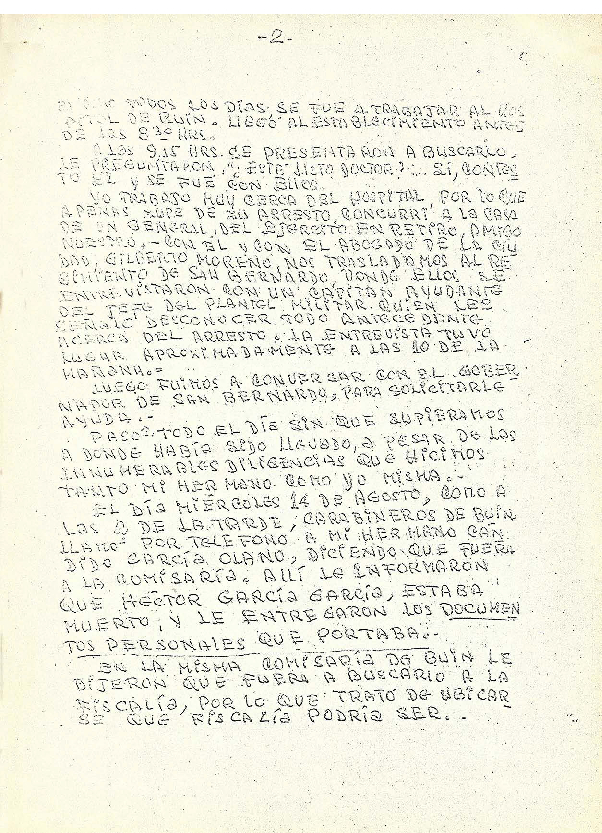 -2-
TODOS LOS DÍAS SE FUE A TRABAJAR AL HOS
PITAL DE BUIN. LLEGÓ AL ESTABLECIMIENTO ANTES
DE LAS 8,30 HRS.
A LAS 9,15 HRS. SE PRESENTARON A BUSCARLO.
LE PREGUNTARON, "¿ESTÁ LISTO DOCTOR?".. SÍ, CONTES
TÓ ÉL Y SE FUE CON ELLOS.
YO TRABAJO MUY CERCA DEL HOSPITAL, POR LO QUE
APENAS SUPE DE SU ARRESTO, CONCURRÍ A LA CASA
DE UN GENERAL, DEL EJÉRCITO EN RETIRO, AMIGO
NUESTRO.- CON ÉL Y CON EL ABOGADO DE LA CIU
DAD, GILBERTO MORENO, NOS TRASLADAMOS AL RE
GIMIENTO DE SAN BERNARDO, DONDE ELLOS SE
ENTREVISTARON CON UN CAPITÁN AYUDANTE
DEL JEFE DEL PLANTEL MILITAR QUIEN LES
SEÑALÓ DESCONOCER TODO ANTECEDENTE
ACERCA DEL ARRESTO. LA ENTREVISTA TUVO
LUGAR APROXIMADAMENTE A LAS 10 DE LA
MAÑANA.=
LUEGO FUIMOS A CONVERSAR CON EL GOBER
NADOR DE SAN BERNARDO, PARA SOLICITARLE
AYUDA.-
PASÓ TODO EL DÍA SIN QUE SUPIÉRAMOS
A DONDE HABÍA SIDO LLEVADO, A PESAR DE LAS
INNUMERABLES DILIGENCIAS QUE HICIMOS
TANTO MI HERMANO COMO YO MISMA..
EL DÍA MIÉRCOLES 14 DE AGOSTO, COMO A
LAS DE LA TARDE, CARABINEROS DE BUIN
LLAMÓ POR TELÉFONO A MI HERMANO CÁN
DIDO GARCÍA OLANO, DICIENDO QUE FUERA
A LA COMISARÍA. ALLÍ LE INFORMARON
QUE HÉCTOR GARCÍA GARCÍA, ESTABA
MUERTO, Y LE ENTREGARON LOS DOCUMEN
TOS PERSONALES QUE PORTABA.-
EN LA MISMA COMISARÍA DE BUIN LE
DIJERON QUE FUERA A BUSCARLO A LA
FISCALÍA, POR LO QUE TRATÓ DE UBICAR
SE QUE FISCALÍA PODRÍA SER..